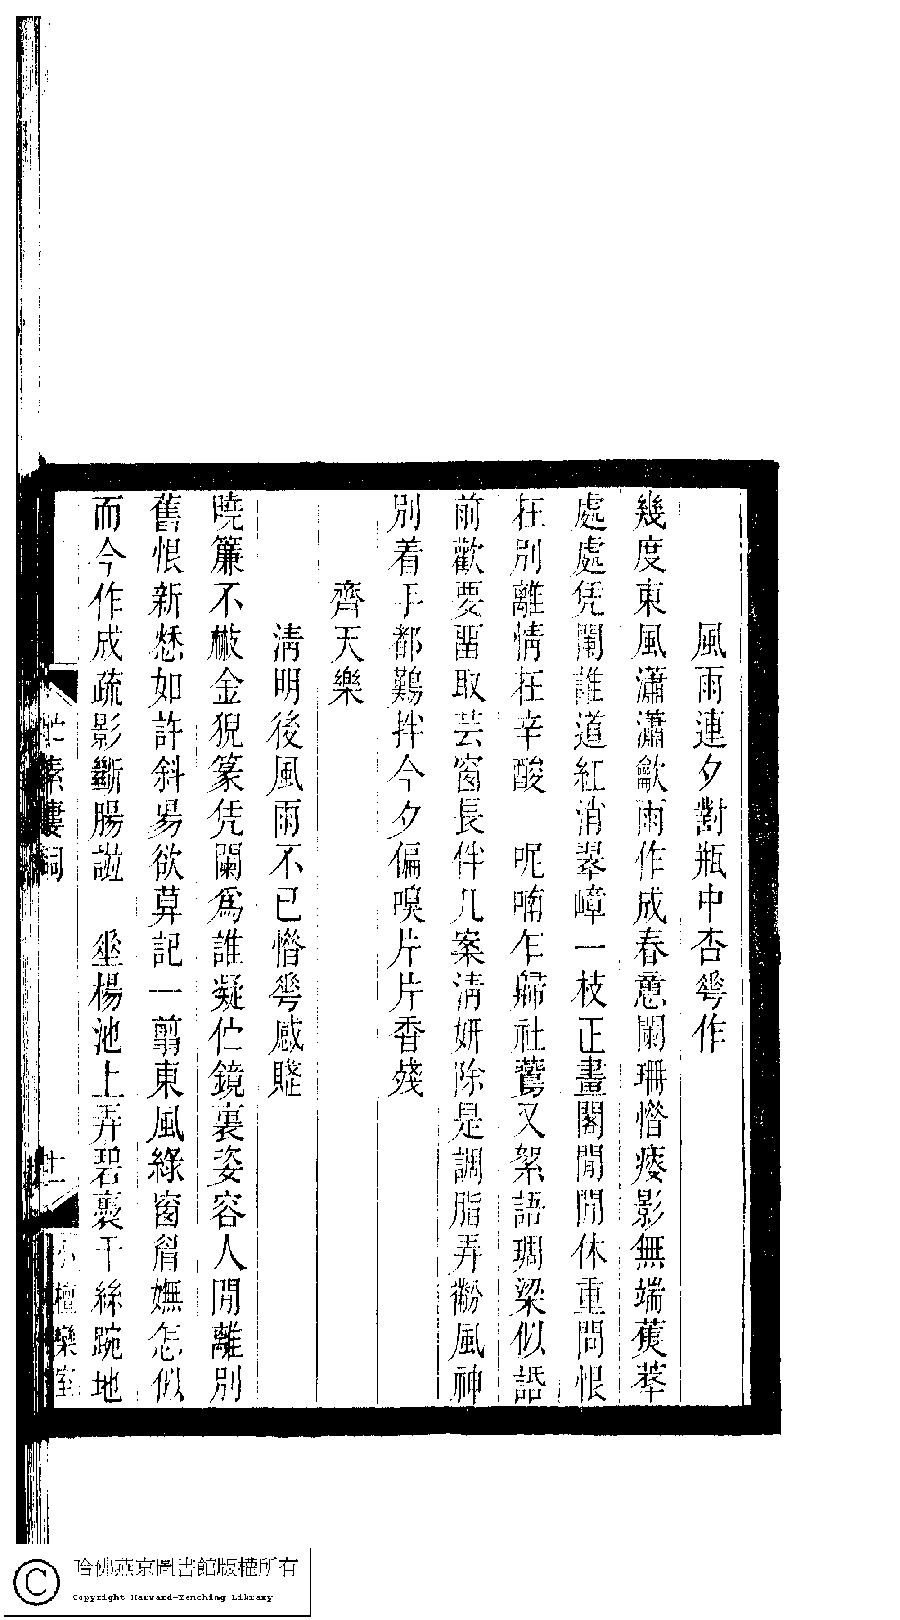 風雨連夕對瓶中杏蕚作
幾度東風瀟瀟歙雨作成春意闌珊憯瘦影無端萑葦
處處凭闌誰道紅消翠嶂一枝正畫閣閒閒休重問恨
在別離情在辛酸　呢喃乍歸社鶯又絮語琱梁似語
前歡要畱取芸窗長伴几案淸姸除是調脂弄黺風神
別着手都難拌今夕偏嗅片片香殘
齊天樂
淸明後風雨不已憯蕚感賦
曉簾不敝金猊篆凭闌爲誰凝佇鏡裏姿容人閒離別
舊恨新愁如許斜昜欲莫記一翦東風綠窗眉嫵怎似
而今作成疏影斷腸譜　垂楊池上弄碧裊千絲踠地
忙素廔詞
廿
小檀欒室
哈佛燕京圖書館版權所有
Copyright Harvard-Yenching Library